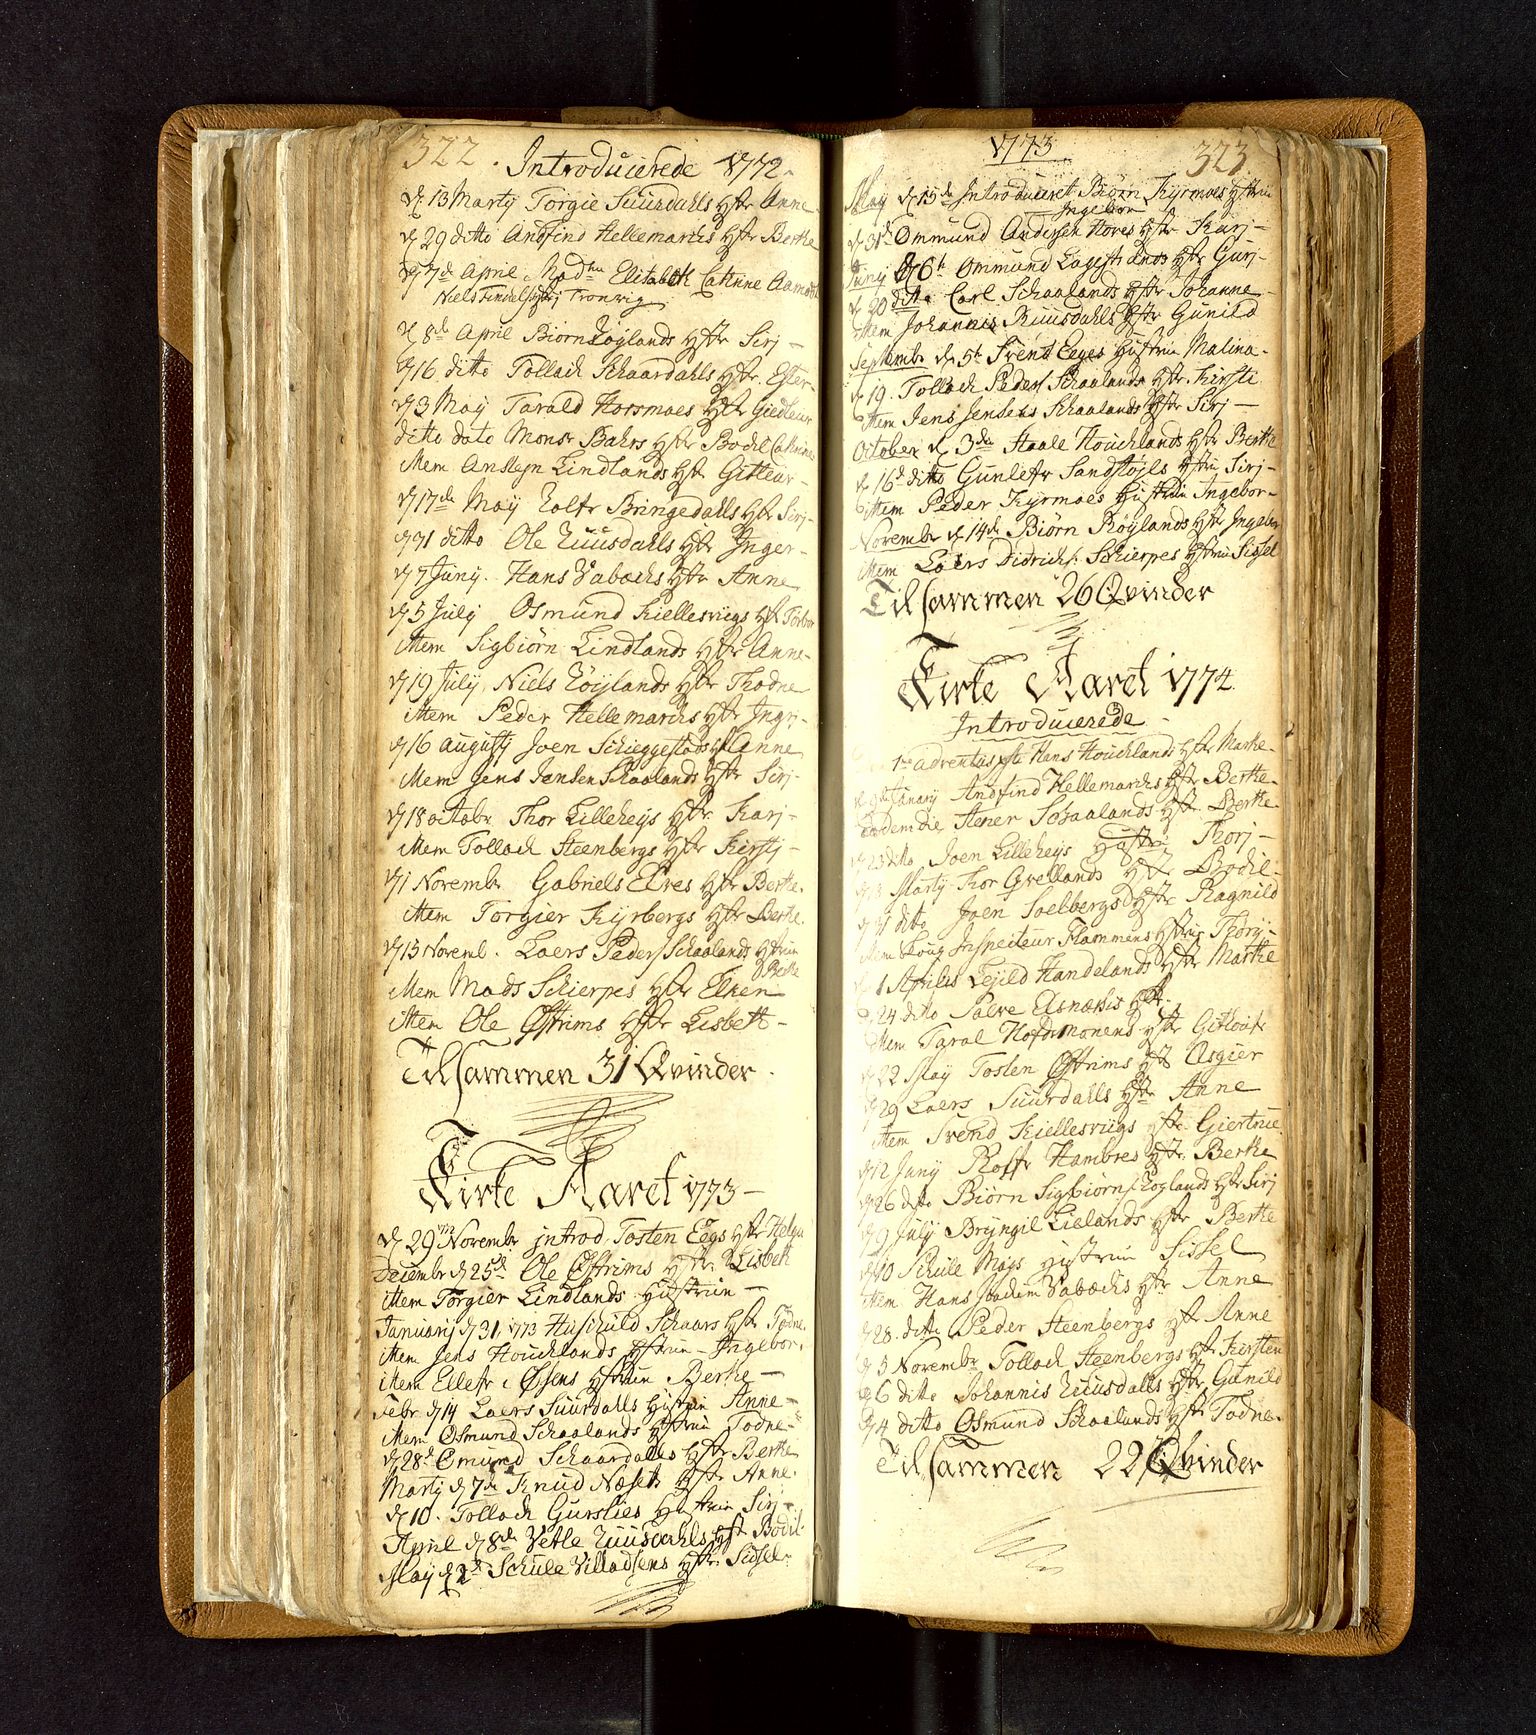 322. Introducerede 1772.
d 13 Marty Torgie Suurdahls Hstr Anne
d 29 ditto Andfind Hellemarchs Hstr Berthe
d 7de April Mad Elisabeth Cathrine
d 8de April Biørn Høylands Hstr Sirj
d 16 ditto Tollach Skaardahls Hstr Ester
d 3 May Tarald Hors­moes Hstr
ditto dato Monsr Bahrs Hstr Bodil Cathrine
Item Ansteyn Lindlands Hst Gitteur
d 17de May Rolfr Bringedahls Hstr Sirj
d 31 ditto Ole Ruusdahls Hstr Inger
d 7 Junij Hans Vabochs Hstr Anne
d 5 July Osmund Kiellesviigs Hstr Torbor
Item Sigbiørn Lindlands Hstr Anne
d 19 July Niels Høylands Hstr Thodne
item Peder Hellemarchs Hstr Ingrj
d 16 augusty Joen Schieggestads Hstr Anne
Item Jens Jensen Skaalands Hstr Sirj
d 18 octobr Thor Lilleheys Hstr Karj
Item Tollach Steenbergs Hstr Kirstj
d 1 Novembr Gabriels Elves Hstr Berthe
Item Torgier Kyrbergs Hstr Berthe
d 15 Novemb. Laers Peders Schaalands Hstruu
Berthe
Item Mads Schierpes Hstr Elken
item Ole Østrims Hstr Lisbeth
Tilsammen 31 Qvinder
Kirke Aaret 1773
d 29 Novembr introd. Tosten Eegs Hstr Helga
Decembr d 25de Ole Østrims Hstr Lisbeth
Item Torgier Lindlands Hustruu
Januarij d 31, 1773 Huskuld Skaars Hstr Todne
Item Jens Houchlands Hstruu Ingebor
item Ellefr Øysens Hstruu Berthe
Febr d 14 Laers Suurdalls Hustruu Anne
Item Osmund Schaalands Hstruu Todne
d 28de Omund Schaardals Hstr Berthe
Marty d 7de Knud Næseth Hstr Anne
d 10. Tollach Gurslies Hustruu Sirj
April d 8de Vetle Ruusdahls Hstr Bodil
May d 2de Schule Villadsens Hstr Sidsel
1773 323
May d 15de Introduceret Biørn Kyrmoes Hstruu
Ingebor
d 31te Ommund Andersen Hoves Hstr Karj
Junij d 6te Ommund Hstr Gurj
d 20 ditto Carl Schaalands Hstr Johanne
Item Johannis Ruusdahls Hstr Gunild
Septembr d 5te Svend Eeges Hustruu Malina
d 19. Tollach Peders Schaalands Hstr Kirsti
Item Jens Jensens Schaalands Hstr Sirj
October d 3die Staale Houchlands Hstr Berthe
d 16de ditto Gunlefr Sandsløyls Hstruu Sirj
item Peder Kyrmoes Hustruu Ingebor
November d 14de Biørn Røylands Hstr Ingebor
item Laers Didrichs: Schierpes Hstruu Sissel
Tilsammen 26 Qvinder
Kirke Aaret 1774.
Introducerede
1te adventus Hans Houchlands Hstr Marthe
d 9de Janary Andfind Hellemarchs Hstr Berthe
Eodem die Stener Schaalands Hstr Berthe
d 23 ditto Joen Lilleheys Hustru Thorj
d 3 Marty Thor Qvellands Hstr Bodil
d 31 ditto Joen Soelbergs Hstr Ragnild
Item Toug Inspecteur Flammens Hstruu Thorj
d 1 Aprilis Tejild Handelands Hstr Marthe
d 24 ditto Salve Hstr
Item Taral Hofdemonens Hstr
d 22 May Tosten Østrims Hstr Asgier
d 29 Laers Suurdahls Hstr Anne
Item Svend Kiellesviigs Hstr Giertrue
d 12 Junij Rolfr Hambres Hstr Berthe
d 26 ditto Biørn Sigbiørns Røglands Hstr Sirj
d 9 Julij Bryngil Lielands Hstr Berthe
d 10 Schule Moys Hustruu Sissel
item Hans Joachim Vabochs Hstr Anne
d 28. ditto Peder Steenbergs Hstr Anne
d 3 Novembr Tollach Steenbergs Hstr Kirsten
d 6 ditto Johannis Ruusdalls Hstr Gunild
d 4 ditto Osmund Schaalands Hstr Todne
Tilsammen 22 Qvinder